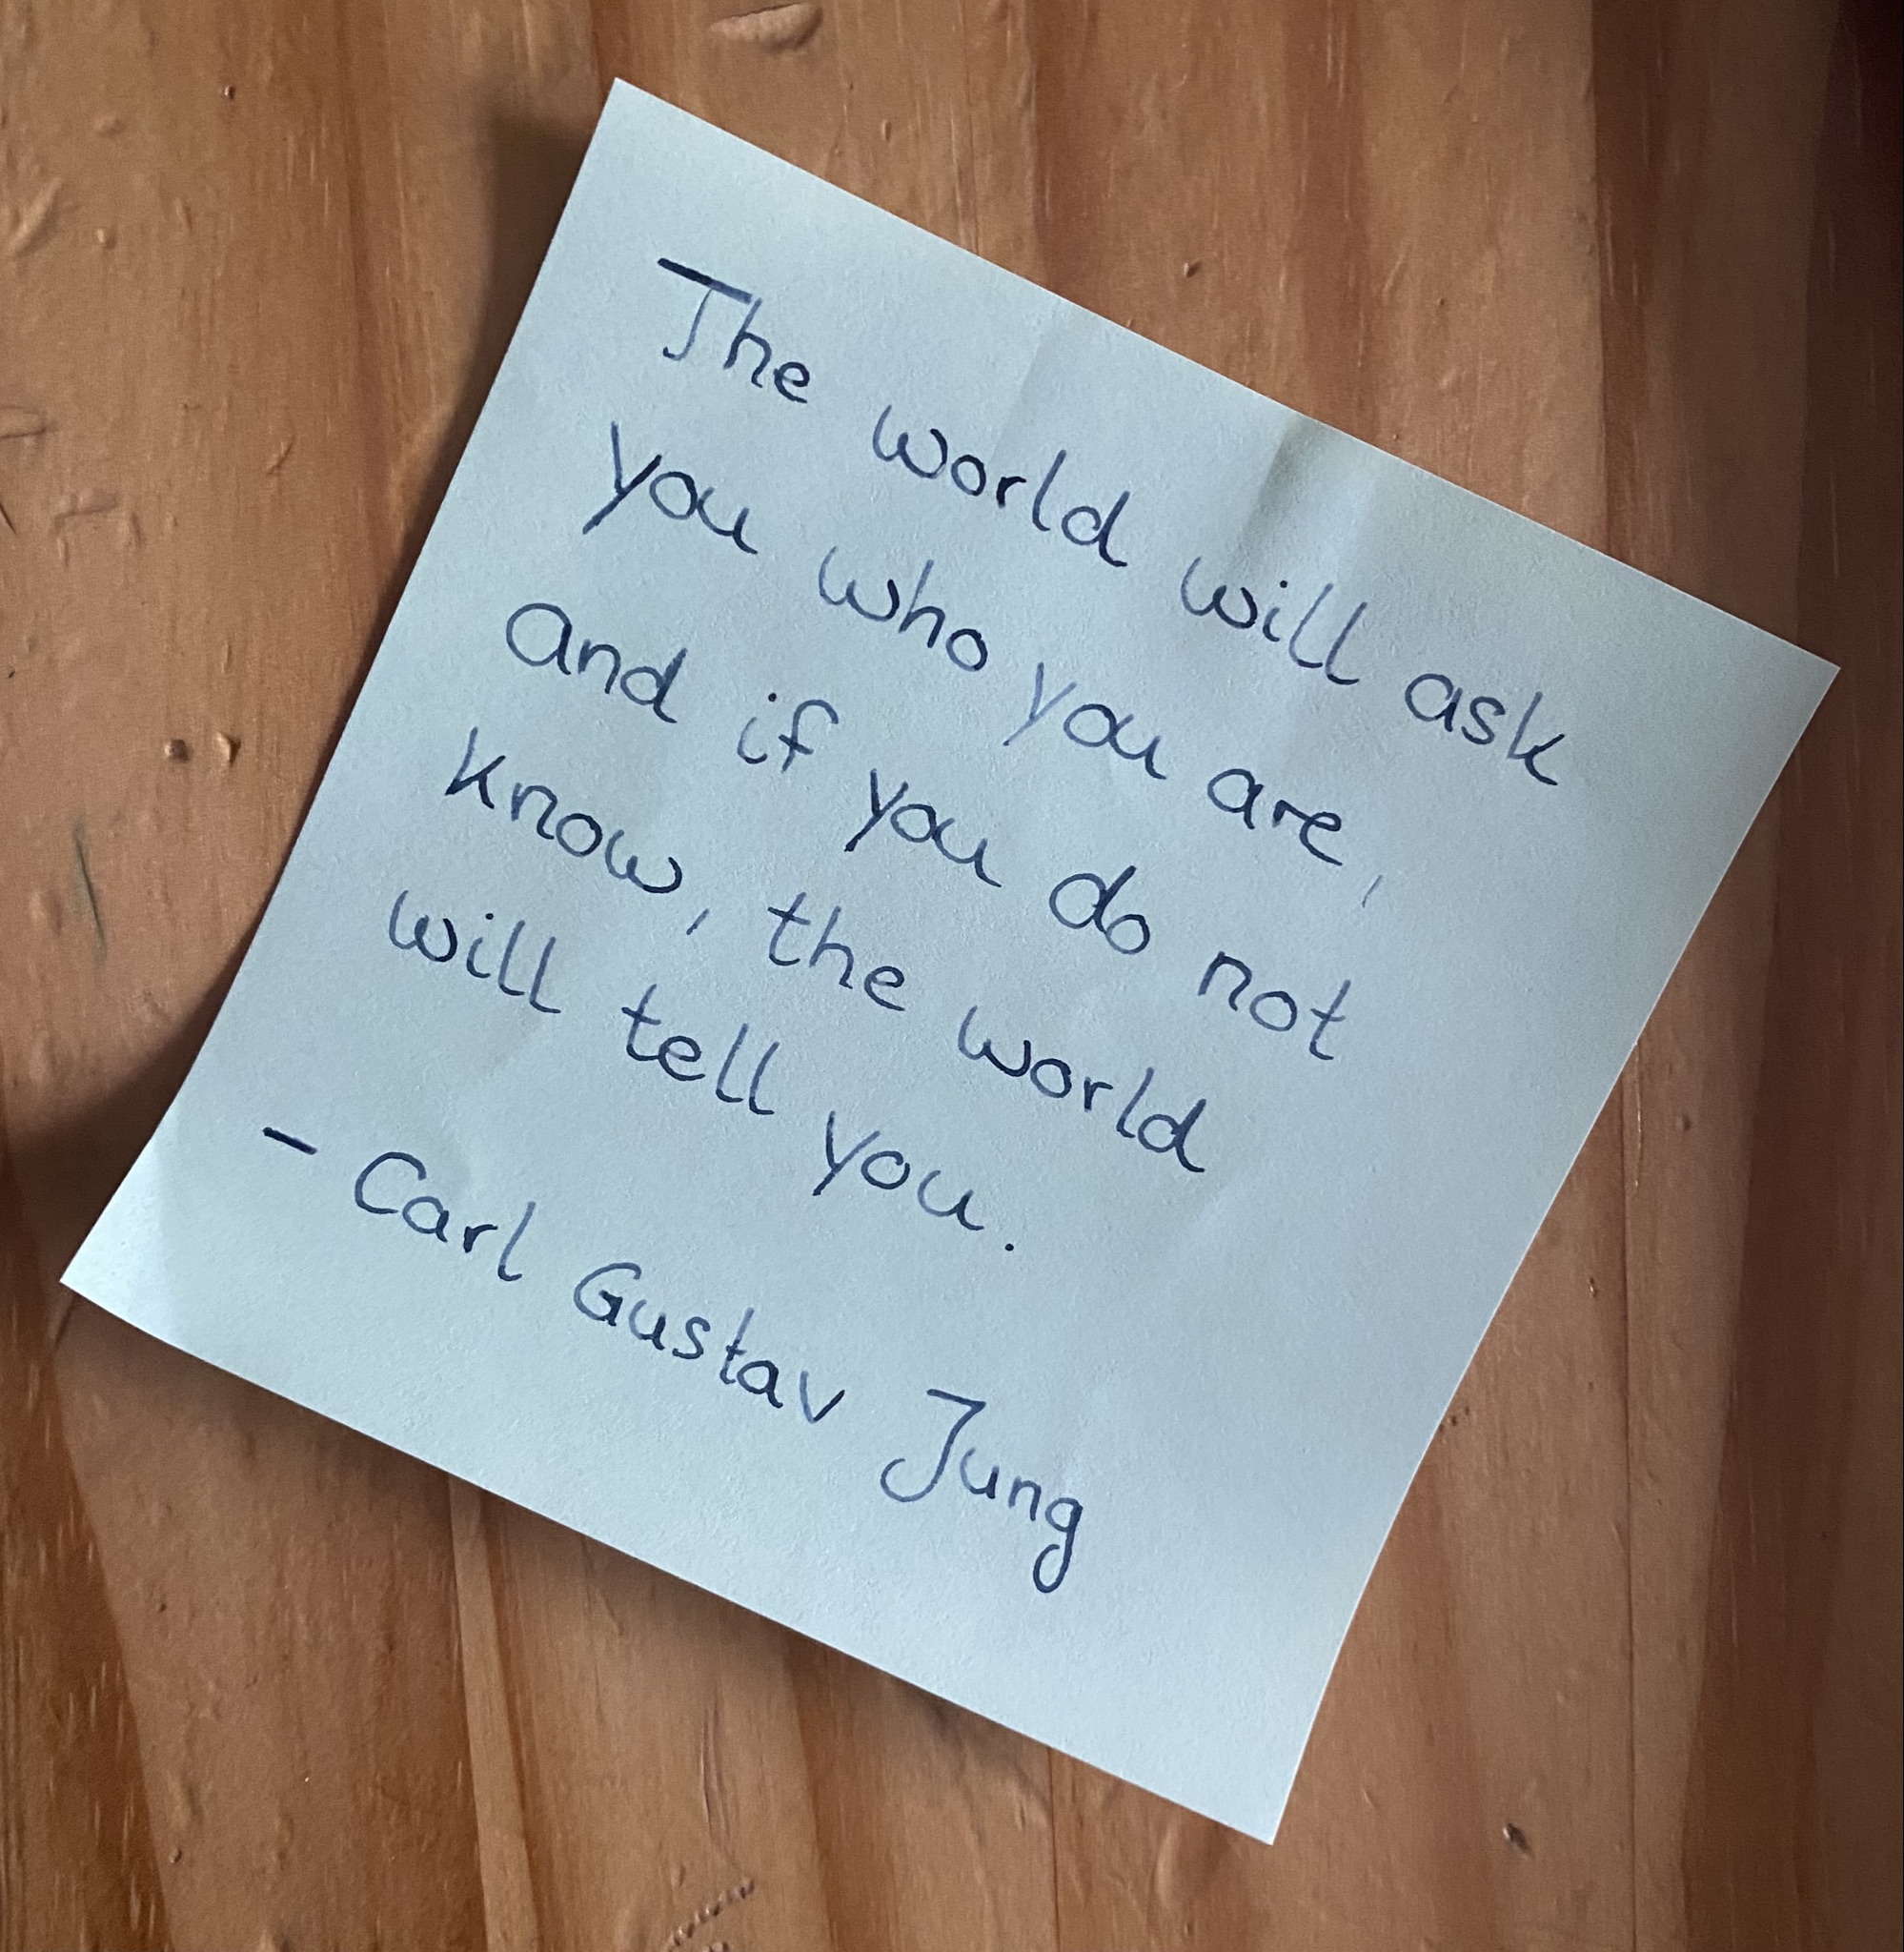 The world will ask
you who you are,
and if you do not
know, the world
will tell you.
- Carl Gustav Jung